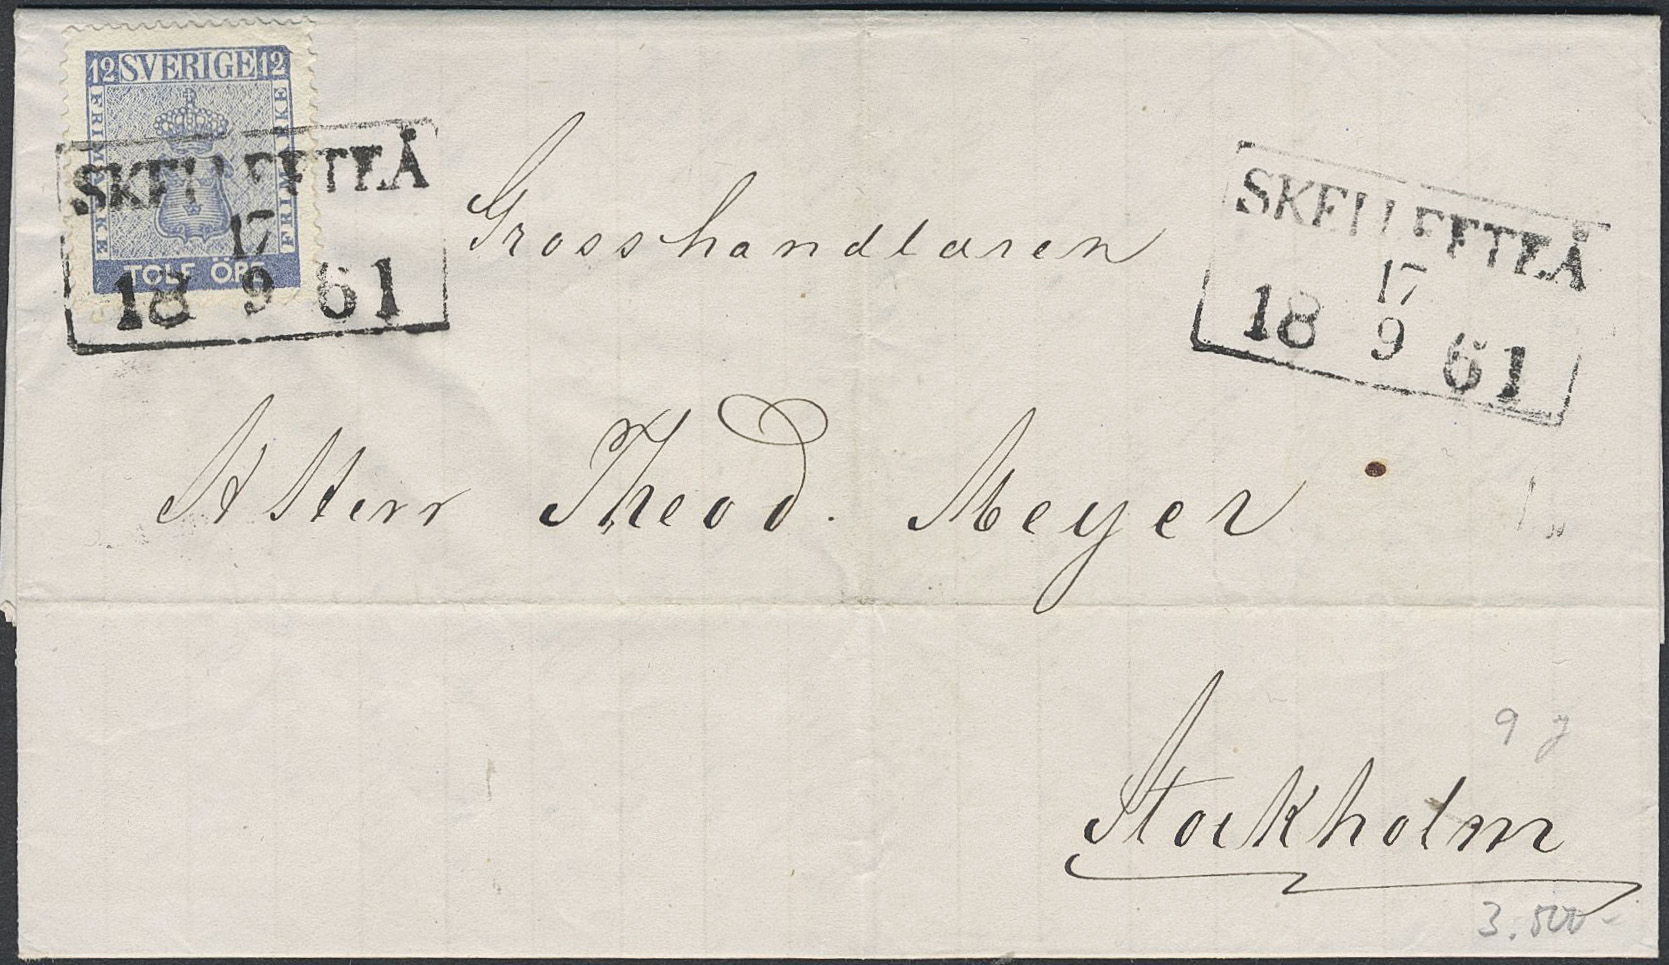 12 SVERIGE 12
FRIMÄRKE
FRIMÄRKE
TOLF ÖRE
SKELLEFTEÅ
17
18 9 61
SKELLEFTEÅ
17
18 9 61
Grosshandlaren
H Herr Theod. Meyer
Stockholm
3.500-